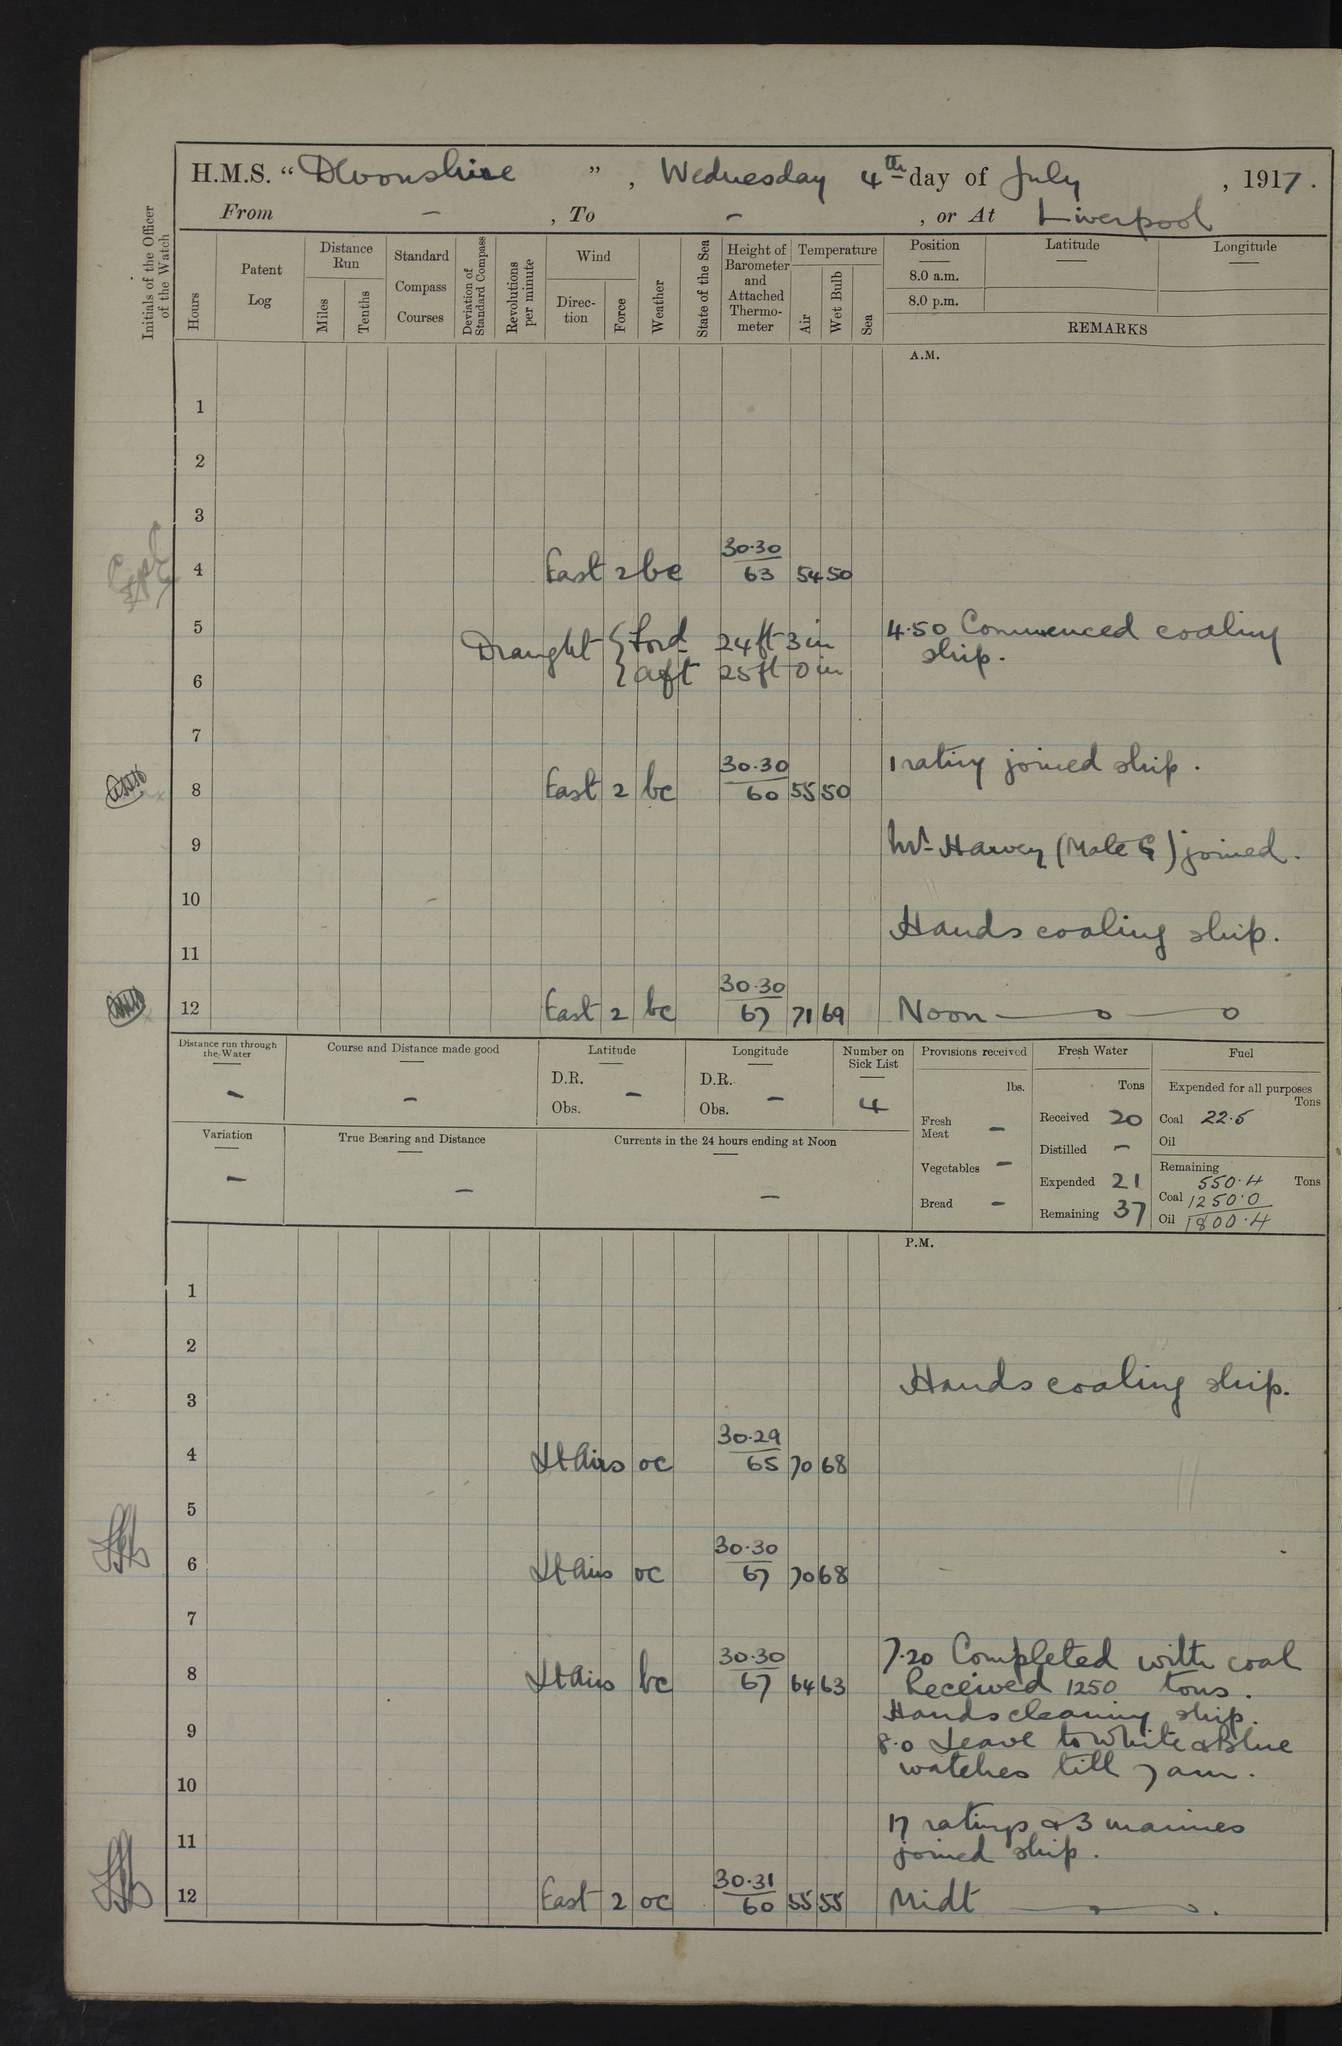 H.M.S. “Devonshire”, Wednesday 4th day of July, 1917.
From - , To - , or At Liverpool
Initials of the Officer of the Watch
Hours
Patent Log
Distance Run
Miles
Tenths
Standard Compass Courses
Deviation of Standard Compass
Revolutions per minute
Wind
Direction
Force
Weather
State of the Sea
Height of Barometer and Attached Thermometer
Temperature
Air
Wet Bulb
Sea
Position
Latitude
Longitude
8.0 a.m.
8.0 p.m.
REMARKS
A.M.
1
2
3
4 East 2 bc 30.30 63 54 50
5 Draught { Ford 24 ft 3 in 4.50 Commenced coaling
ship.
6 } aft 25 ft 0 in
7
1 rating joined ship.
8 East 2 bc 30.30 60 55 50
9 Mr Harvey (Mate E) joined.
10
Hands coaling ship.
11
12 East 2 bc 30.30 67 71 69 Noon
Distance run through the Water
-
Course and Distance made good
-
Latitude
D.R.
Obs. -
Longitude
D.R.
Obs. -
Number on Sick List
4
Provisions received
lbs.
Fresh Meat -
Vegetables -
Bread -
Fresh Water
Tons
Received 20
Distilled -
Expended 21
Remaining 37
Fuel
Expended for all purposes
Tons
Coal 22.5
Oil
Remaining
550.4 Tons
Coal 1250.0
Oil 1800.4
Variation
-
True Bearing and Distance
-
Currents in the 24 hours ending at Noon
-
P.M.
1
2
Hands coaling ship.
3
4 Lt Airs oc 30.29 65 70 68
5
6 Lt Airs oc 30.30 67 70 68
7
7.20 Completed with coal
8 Lt Airs bc 30.30 67 64 63 Received 1250 tons.
Hands cleaning ship.
9 8.0 Leave to White & Blue
watches till 7 am.
10
17 ratings & 3 marines
11 joined ship.
12 East 2 oc 30.31 60 55 55 Midt